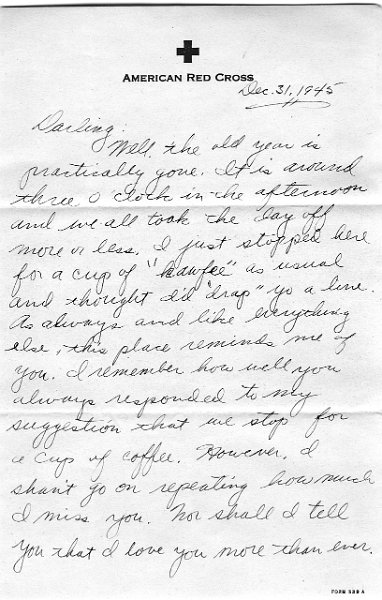 AMERICAN RED CROSS
Dec. 31, 1945
Darling:
Well, the old year is
practically gone. It is around
three o'clock in the afternoon
and we all took the day off
more or less. I just stopped here
for a cup of "kawfee" as usual
and thought I'd "drap" yo a line.
As always and like everything
else, this place reminds me of
you. I remember how well you
always responded to my
suggestion that we stop for
a cup of coffee. However, I
shan't go on repeating how much
I miss you. Nor shall I tell
you that I love you more than ever.
FORM 539 A